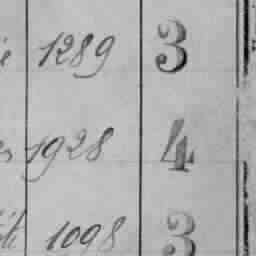 1289 3
1928 4
1098 3